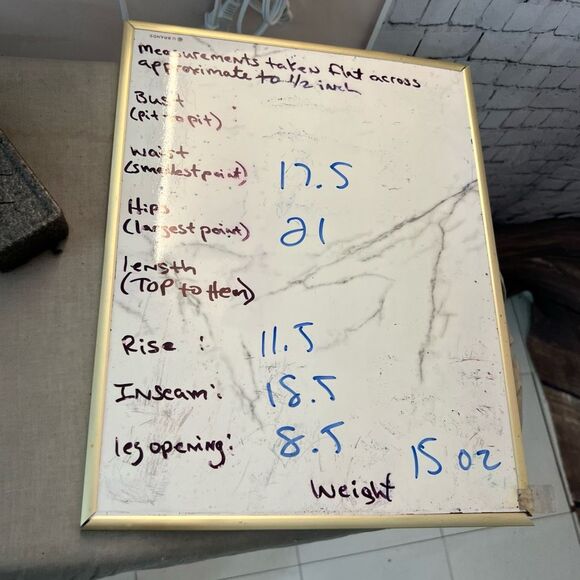 U BRANDS
Measurements taken flat across
approximate to 1/2 inch
Bust :
(pit to pit)
Waist
(smallest point) 17.5
Hips
(largest point) 21
length
(TOP to Hem)
Rise : 11.5
Inseam: 18.5
leg opening: 8.5
15 oz
Weight